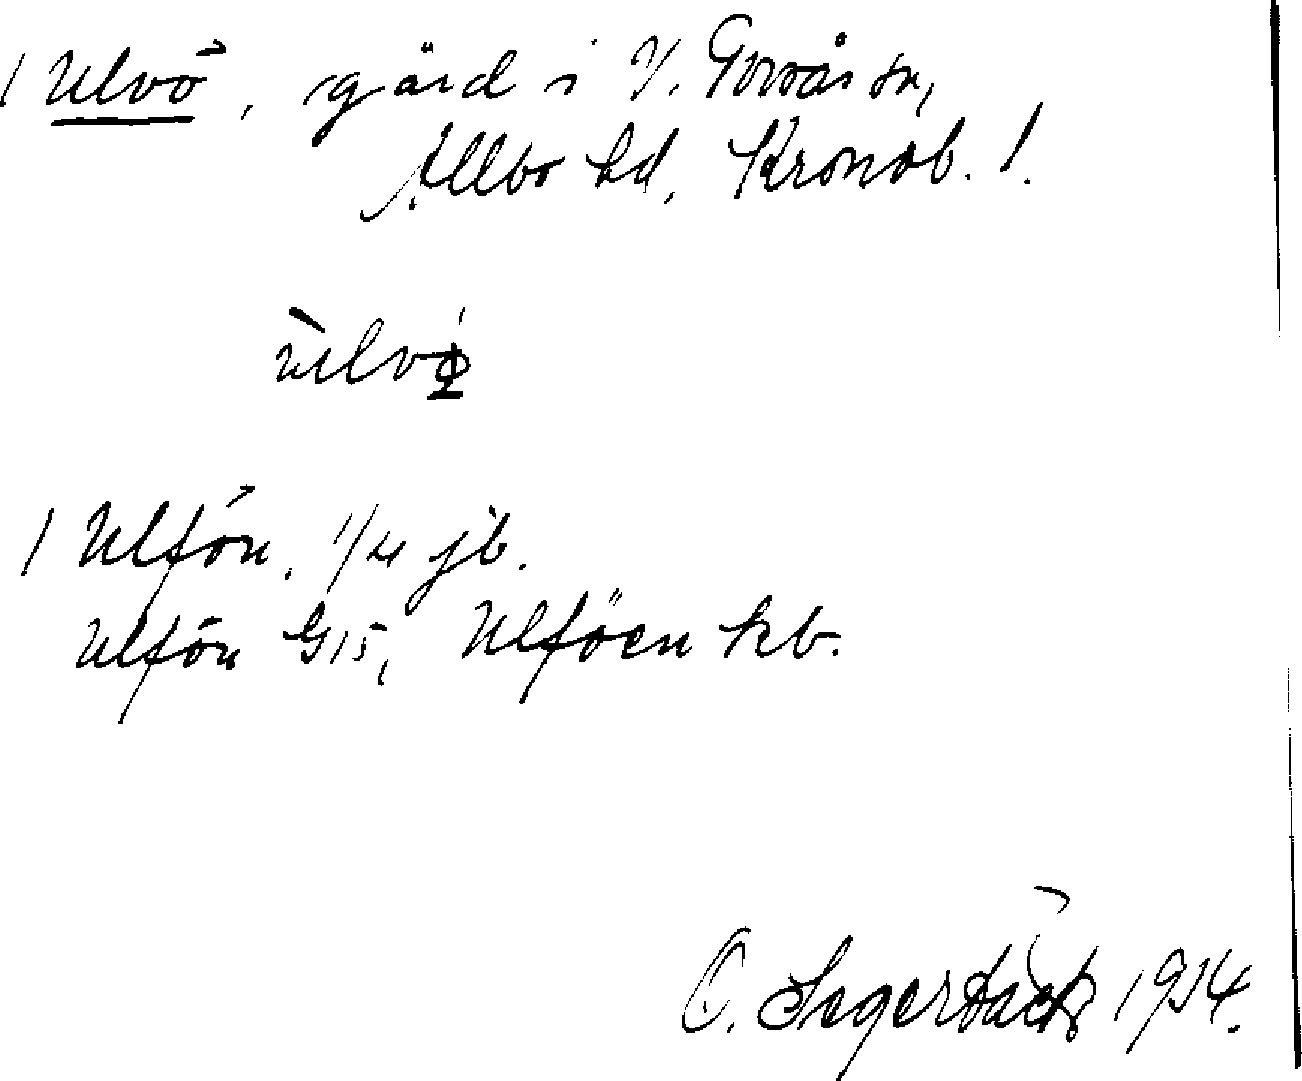 1 Ulvö, gård i V. Torsås sn,
Allbo hd, Kronob. l.
ùlvø̀
1 Ulfön. 1/4 jb.
Ulfön G15, Ulföen kb.
C. Segerbäck 1914.